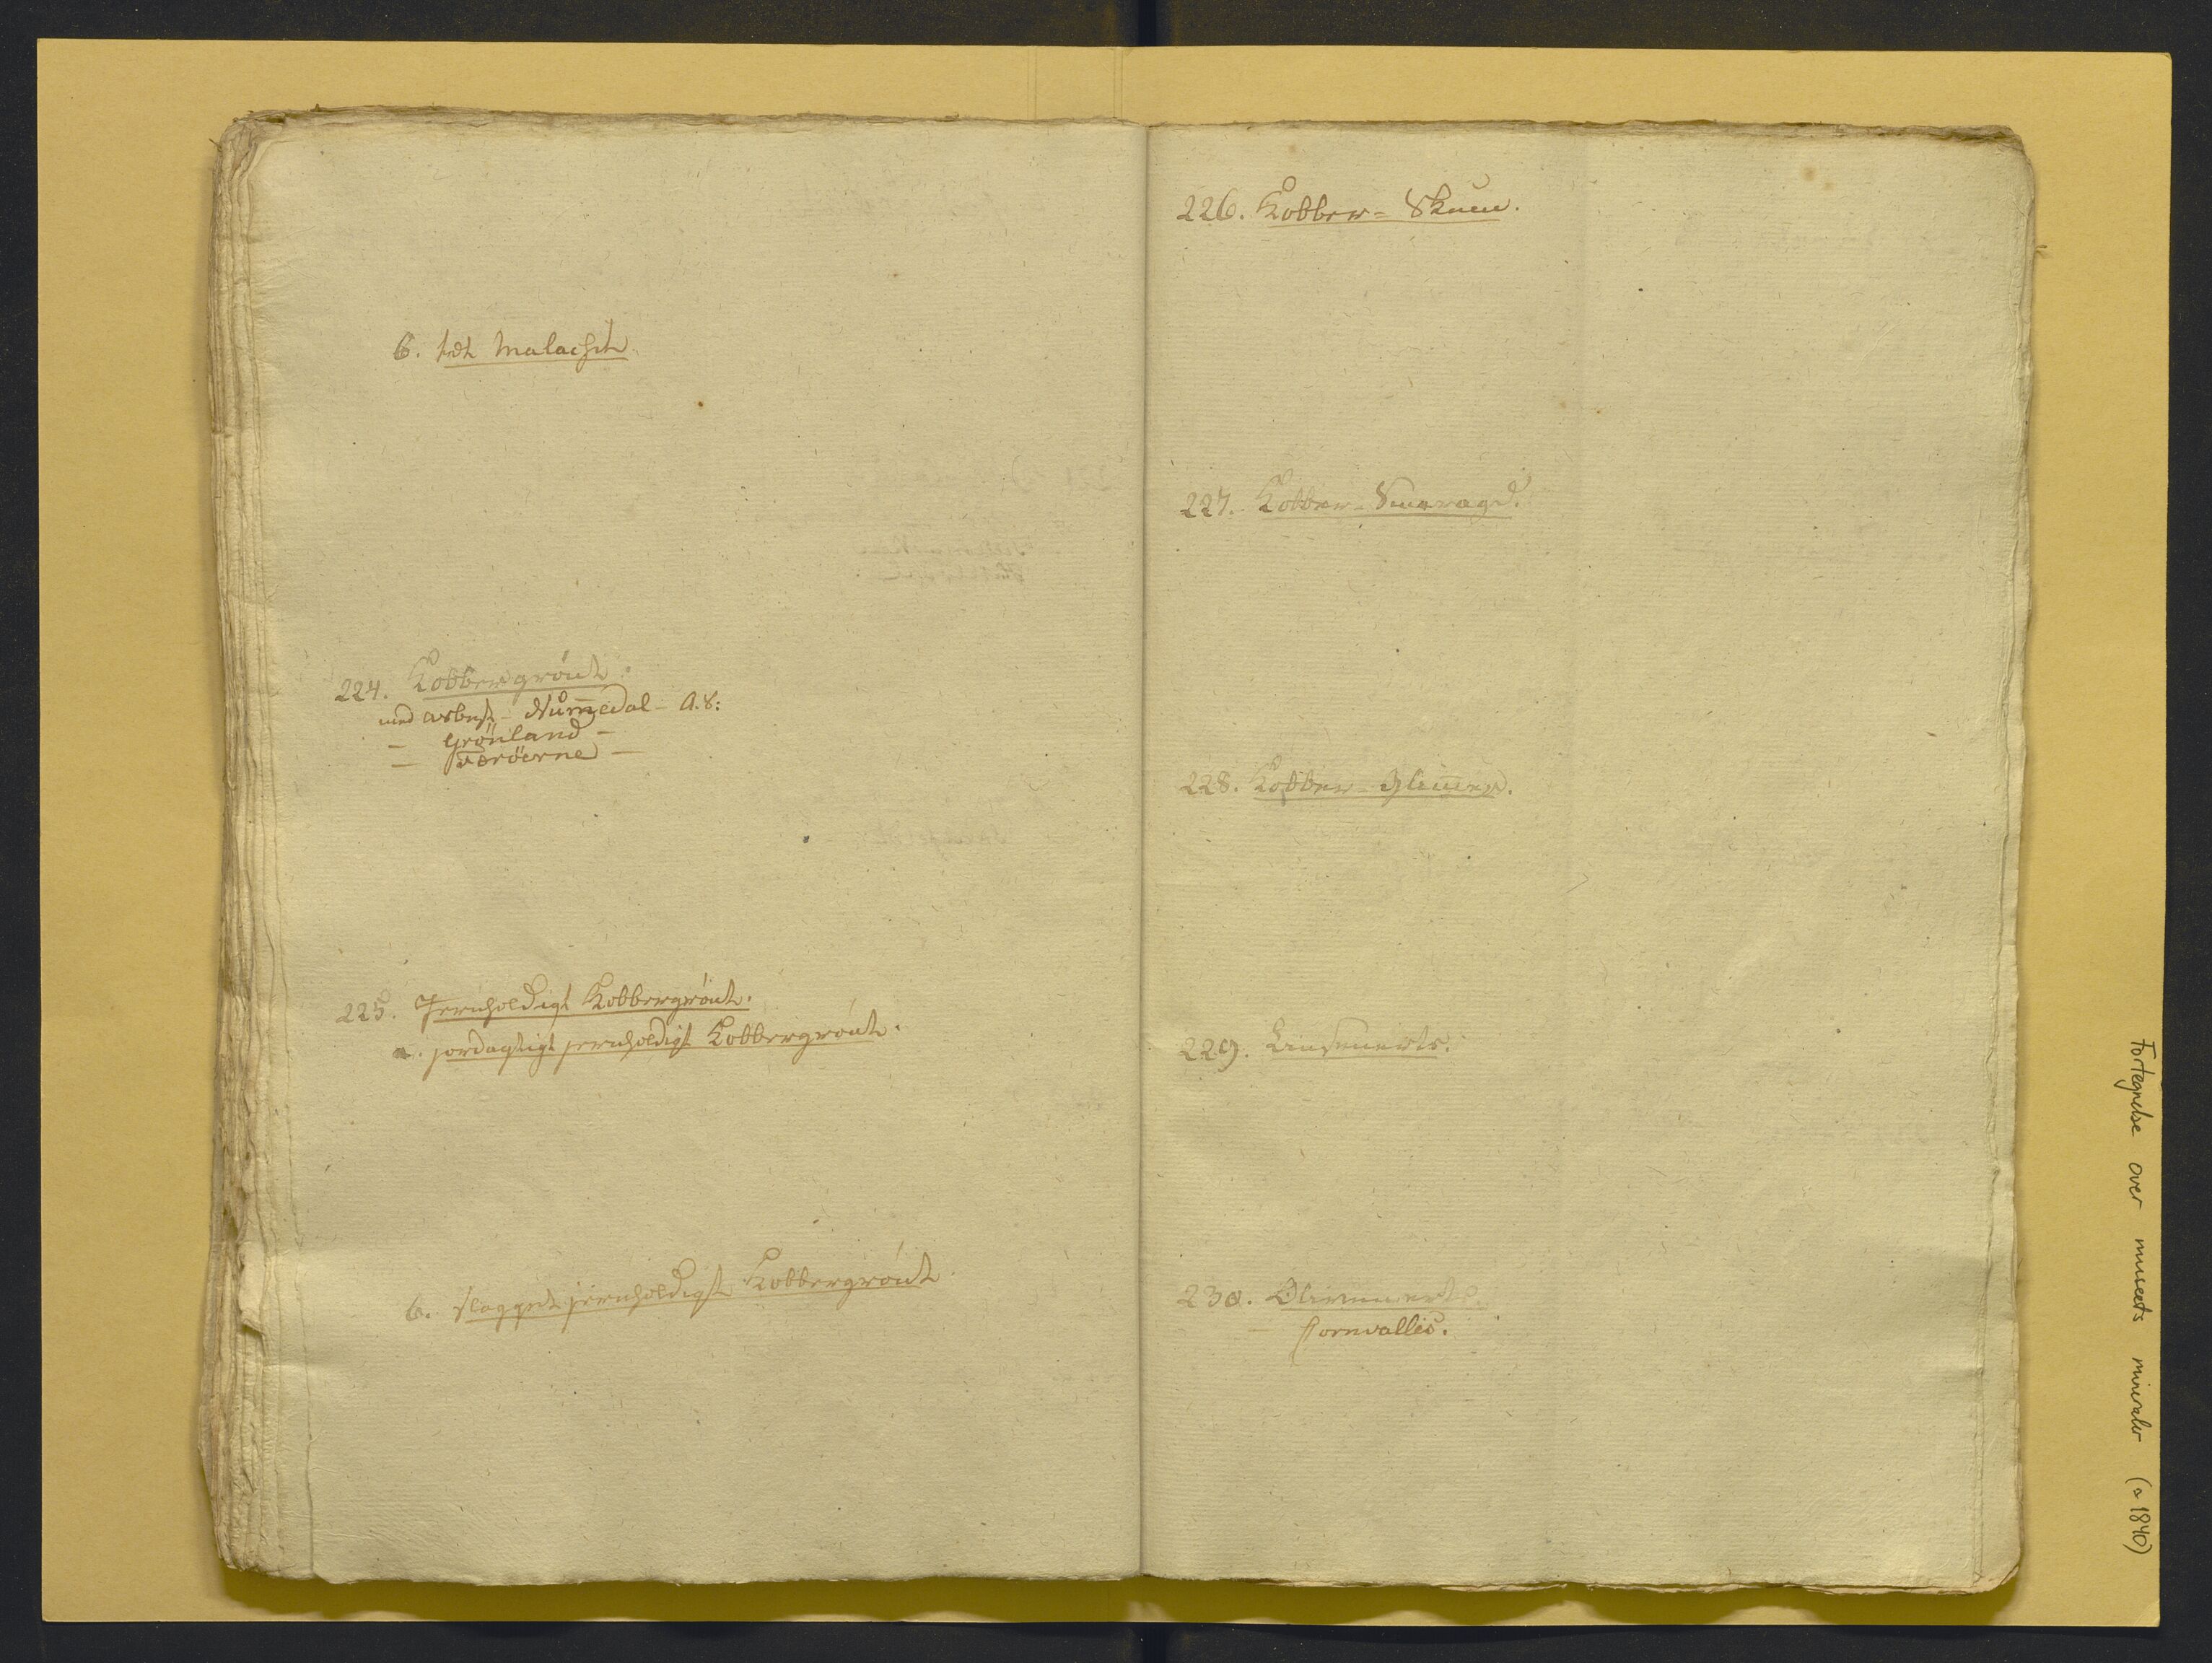 b. tæt Malachit
224. Kobbergrönt.
med Asbest - Nummedal - A.S:
— Grönland —
— Færöerne —
225. Jernholdigt Kobbergrönt.
a. jordagtigt jernholdigt Kobbergrönt.
b. slagget jernholdigt Kobbergrönt
226. Kobber= Skum.
227. Kobber-Smaragd.
228. Kobber= Glimmer.
229. Linsenerts.
230. Olivenerts.
— Cornvallis.
Fortegnelse over museets mineraler (a 1840)